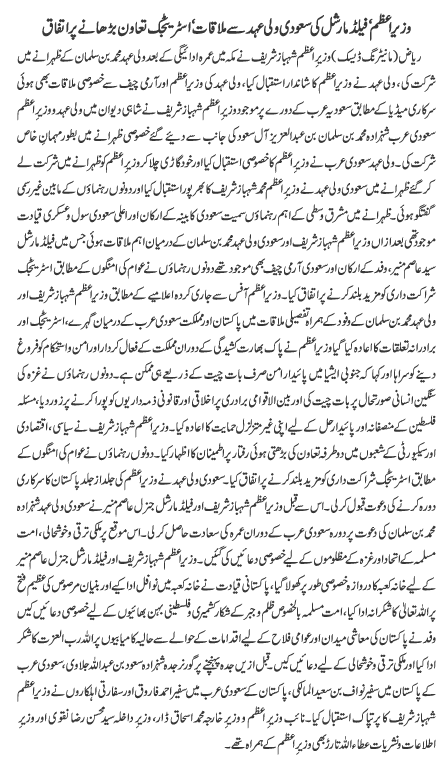 وزیراعظم، فیلڈ مارشل کی سعودی ولی عہد سے ملاقات، اسٹریٹجک تعاون بڑھانے پر اتفاق
ریاض (مانیٹرنگ ڈیسک) وزیراعظم شہباز شریف نے مکہ میں عمرہ ادائیگی کے بعد ولی عہد محمد بن سلمان کے ظہرانے میں
شرکت کی، ولی عہد نے وزیراعظم کا شاندار استقبال کیا، اور آرمی چیف سے خصوصی ملاقات بھی ہوئی
سرکاری میڈیا کے مطابق سعودیہ عرب کے دورے پر موجود وزیراعظم شہباز شریف نے شاہی دیوان میں ولی عہد و
سعودی عرب شہزادہ محمد بن سلمان بن عبدالعزیز آل سعود کی جانب سے دیئے گئے خصوصی ظہرانے میں بطور مہمان خاص
شرکت کی۔ ولی عہد سعودی عرب نے وزیراعظم کا خصوصی استقبال کیا اور خود گاڑی چلا کر وزیراعظم کو ظہرانے میں شرکت کے لئے لے
کر گئے ظہرانے میں سعودی ولی عہد نے وزیراعظم محمد شہباز شریف کا بھرپور استقبال کیا اور دونوں رہنماؤں کے مابین غیر رسمی
گفتگو ہوئی۔ ظہرانے میں مشرق وسطی کے اہم رہنماؤں سمیت سعودی کابینہ کے ارکان اور اعلی سعودی سول و عسکری قیادت
موجود تھی بعد ازاں وزیراعظم شہباز شریف اور سعودی ولی عہد محمد بن سلمان کے درمیان اہم ملاقات ہوئی جس میں فیلڈ مارشل
سید عاصم منیر، وفد کے ارکان اور سعودی آرمی چیف بھی موجود تھے دونوں رہنماؤں نے عوام کی امنگوں کے مطابق اسٹریٹجک
شراکت داری کو مزید بلند کرنے پر اتفاق کیا۔ وزیراعظم آفس سے جاری کردہ اعلامیے کے مطابق وزیراعظم شہباز شریف اور
ولی عہد محمد بن سلمان کے وفود کے ہمراہ تفصیلی ملاقات میں پاکستان اور مملکت سعودی عرب کے درمیان گہرے، اسٹریٹجک اور
برادرانہ تعلقات کا اعادہ کیا گیا وزیراعظم نے پاک بھارت کشیدگی کے دوران مملکت کے فعال کردار اور امن و استحکام کو فروغ
دینے کو سراہا اور کہا کہ جنوبی ایشیا میں پائیدار امن صرف بات چیت کے ذریعے ہی ممکن ہے۔ دونوں رہنماؤں نے غزہ کی
سنگین انسانی صورتحال پر بات چیت کی اور بین الاقوامی برادری پر اخلاقی اور قانونی ذمہ داریوں کو پورا کرنے پر زور دیا، مسئلہ
فلسطین کے منصفانہ اور پائیدار حل کے لیے اپنی غیر متزلزل حمایت کا اعادہ کیا۔ وزیراعظم شہباز شریف نے سیاسی، اقتصادی
اور سیکیورٹی کے شعبوں میں دو طرفہ تعاون کی بڑھتی ہوئی رفتار پر اطمینان کا اظہار کیا۔ دونوں رہنماؤں نے عوام کی امنگوں کے
مطابق اسٹریٹجک شراکت داری کو مزید بلند کرنے پر اتفاق کیا۔ سعودی ولی عہد نے وزیراعظم کی جلد از جلد پاکستان کا سرکاری
دورہ کرنے کی دعوت قبول کر لی۔ اس سے قبل وزیراعظم شہباز شریف اور فیلڈ مارشل جنرل عاصم منیر نے سعودی ولی عہد شہزادہ
محمد بن سلمان کی دعوت پر دورہ سعودی عرب کے دوران عمرہ کی سعادت حاصل کر لی۔ اس موقع پر ملکی ترقی و خوشحالی، امت
مسلمہ کے اتحاد اور غزہ کے مظلوموں کے لیے خصوصی دعائیں کی گئیں۔ وزیراعظم شہباز شریف اور فیلڈ مارشل جنرل عاصم منیر
کے لیے خانہ کعبہ کا دروازہ خصوصی طور پر کھولا گیا، پاکستانی قیادت نے خانہ کعبہ میں نوافل ادا کیے اور بنیان مرصوص کی عظیم فتح
پر اللہ تعالی کا شکرانہ ادا کیا، امت مسلمہ بالخصوص ظلم و جبر کے شکار کشمیری و فلسطینی بہن بھائیوں کے لیے خصوصی دعائیں کیں
وفد نے پاکستان کی معاشی میدان اور عوامی فلاح کے لیے اقدامات کے حوالے سے حالیہ کامیابیوں پر اللہ رب العزت کا شکر
ادا کیا اور ملکی ترقی و خوشحالی کے لیے دعائیں کیں۔ قبل ازیں جدہ پہنچنے پر گورنر جدہ شہزادہ سعود بن عبداللہ جلاوی، سعودی عرب
کے پاکستان میں سفیر نواف بن سعید المالکی، پاکستان کے سعودی عرب میں سفیر احمد فاروق اور سفارتی اہلکاروں نے وزیراعظم
شہباز شریف کا پرتپاک استقبال کیا۔ نائب وزیراعظم و وزیر خارجہ محمد اسحاق ڈار، وزیر داخلہ سید محسن رضا نقوی اور وزیر
اطلاعات و نشریات عطاء اللہ تارڑ بھی وزیراعظم کے ہمراہ تھے۔